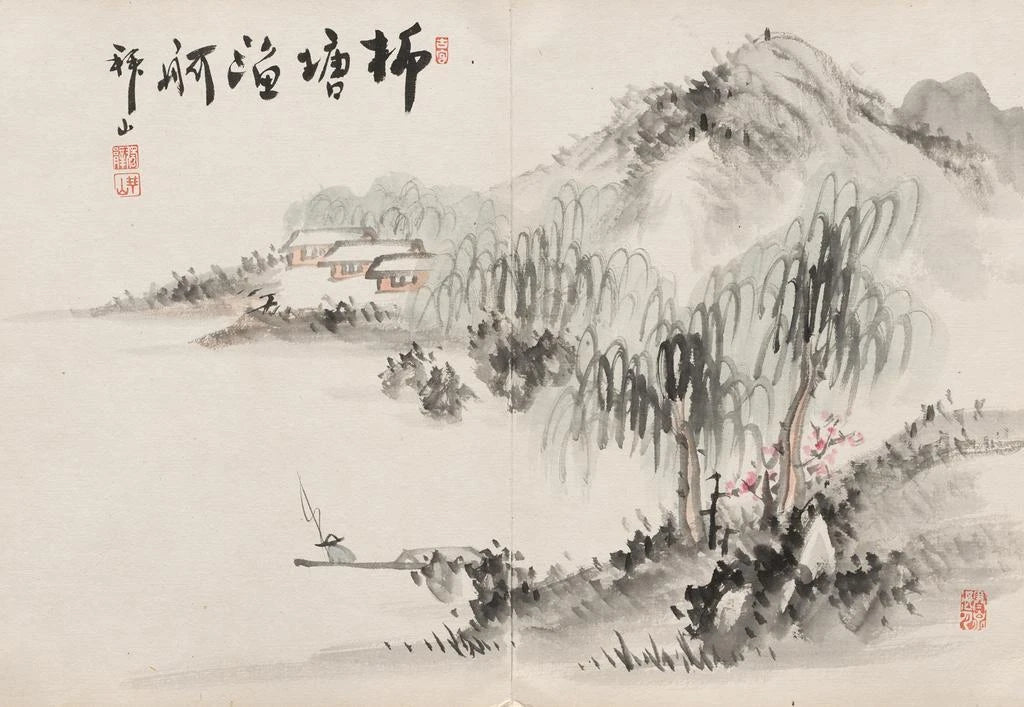 柳塘漁舸
拝山